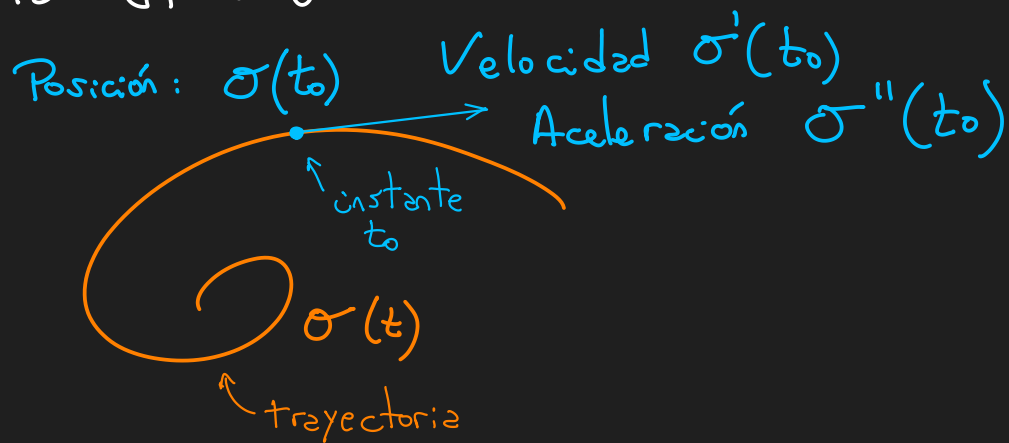 Posición: σ(t₀)
Velocidad σ'(t₀)
Aceleración σ''(t₀)
instante
t₀
σ(t)
trayectoria